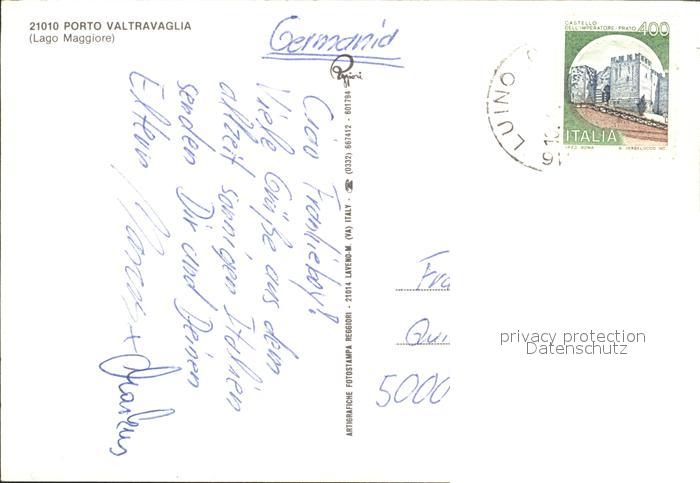 21010 PORTO VALTRAVAGLIA
(Lago Maggiore)
Germania
Ciao
Viele Grüße aus dem
allzeit sonnigen Italien
senden Dir und Deinen
Eltern
+ Markus
Reggiori
ARTIGRAFICHE FOTOSTAMPA REGGIORI - 21014 LAVENO-M. (VA) ITALY - ☎ (0332) 667412 - 601794
CASTELLO
DELL'IMPERATORE-PRATO
400
ITALIA
LUINO
Fra
Qui
5000
privacy protection
Datenschutz